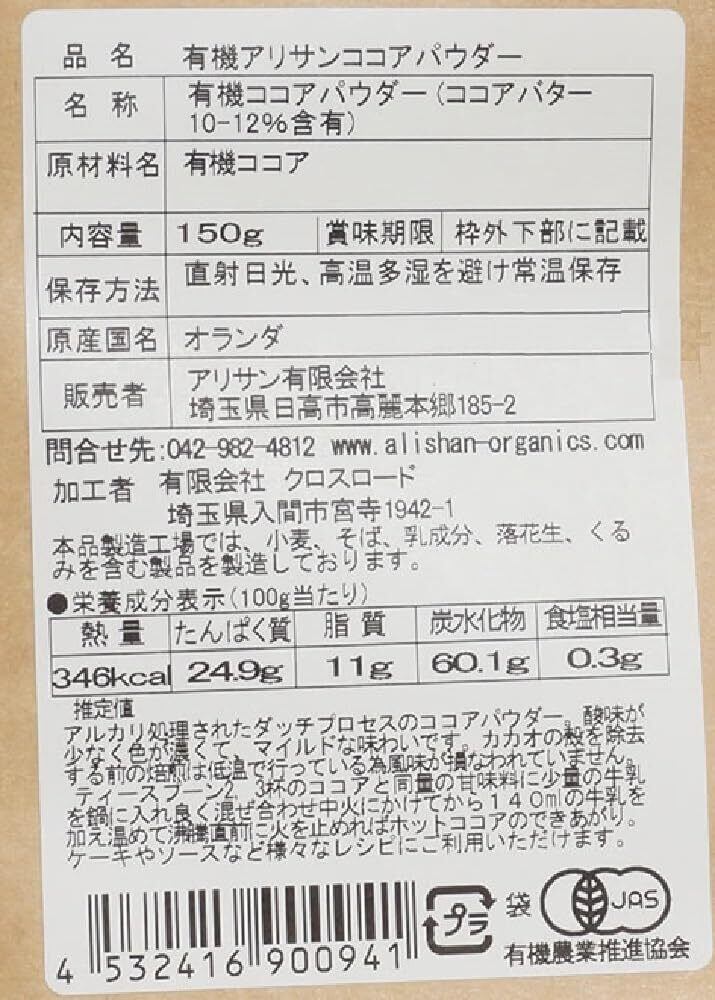 品名 有機アリサンココアパウダー
名称 有機ココアパウダー(ココアバター
10-12%含有)
原材料名 有機ココア
内容量 150g 賞味期限 枠外下部に記載
保存方法 直射日光、高温多湿を避け常温保存
原産国名 オランダ
販売者 アリサン有限会社
埼玉県日高市高麗本郷185-2
問合せ先:042-982-4812 www.alishan-organics.com
加工者 有限会社 クロスロード
埼玉県入間市宮寺1942-1
本品製造工場では、小麦、そば、乳成分、落花生、くる
みを含む製品を製造しております。
●栄養成分表示(100g当たり)
熱量 たんぱく質 脂質 炭水化物 食塩相当量
346kcal 24.9g 11g 60.1g 0.3g
推定値
アルカリ処理されたダッチプロセスのココアパウダー。酸味が
少なく色が濃くて、マイルドな味わいです。カカオの殻を除去
する前の焙煎は低温で行っている為風味が損なわれていません。
ティースプーン2、3杯のココアと同量の甘味料に少量の牛乳
を鍋に入れ良く混ぜ合わせ中火にかけてから140mlの牛乳を
加え温めて沸騰直前に火を止めればホットココアのできあがり。
ケーキやソースなど様々なレシピにご利用いただけます。
4 532416 900941
プラ 袋 JAS
有機農業推進協会